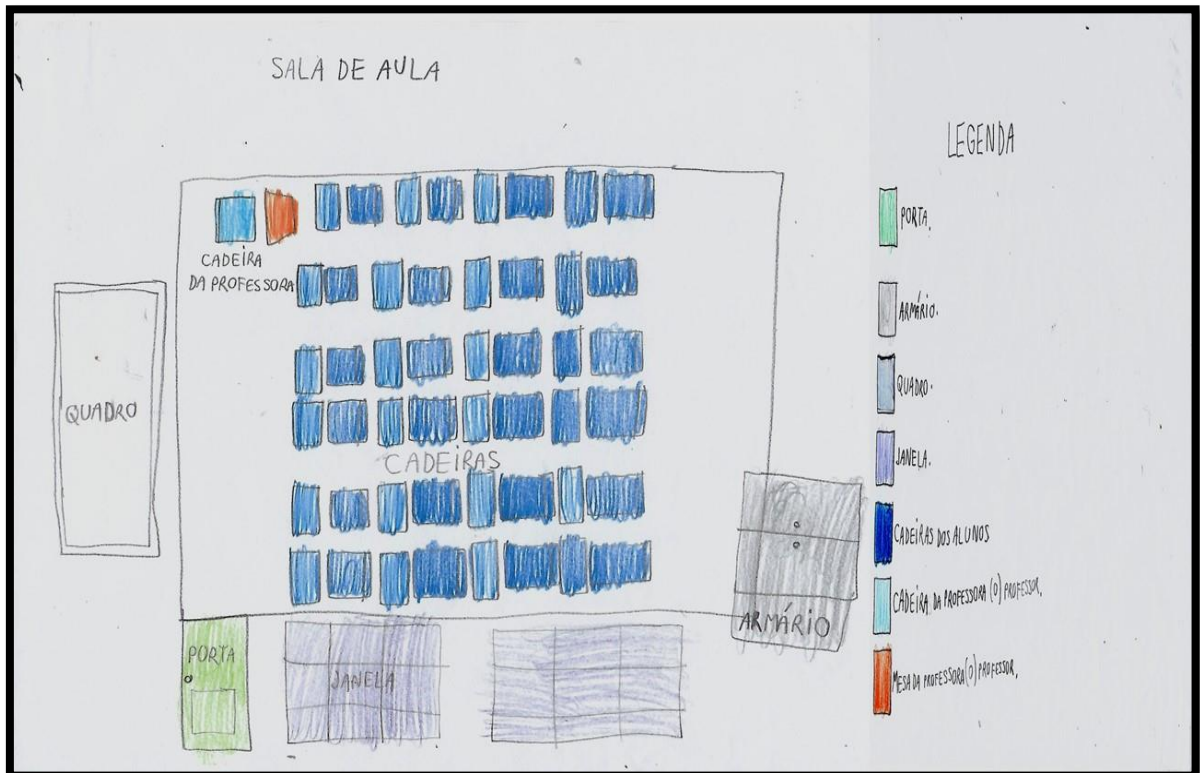 SALA DE AULA
CADEIRA
DA PROFESSORA
QUADRO
CADEIRAS
PORTA
JANELA
ARMÁRIO
LEGENDA
PORTA.
ARMÁRIO.
QUADRO.
JANELA.
CADEIRAS DOS ALUNOS
CADEIRA DA PROFESSORA (O) PROFESSOR.
MESA DA PROFESSORA (O) PROFESSOR.